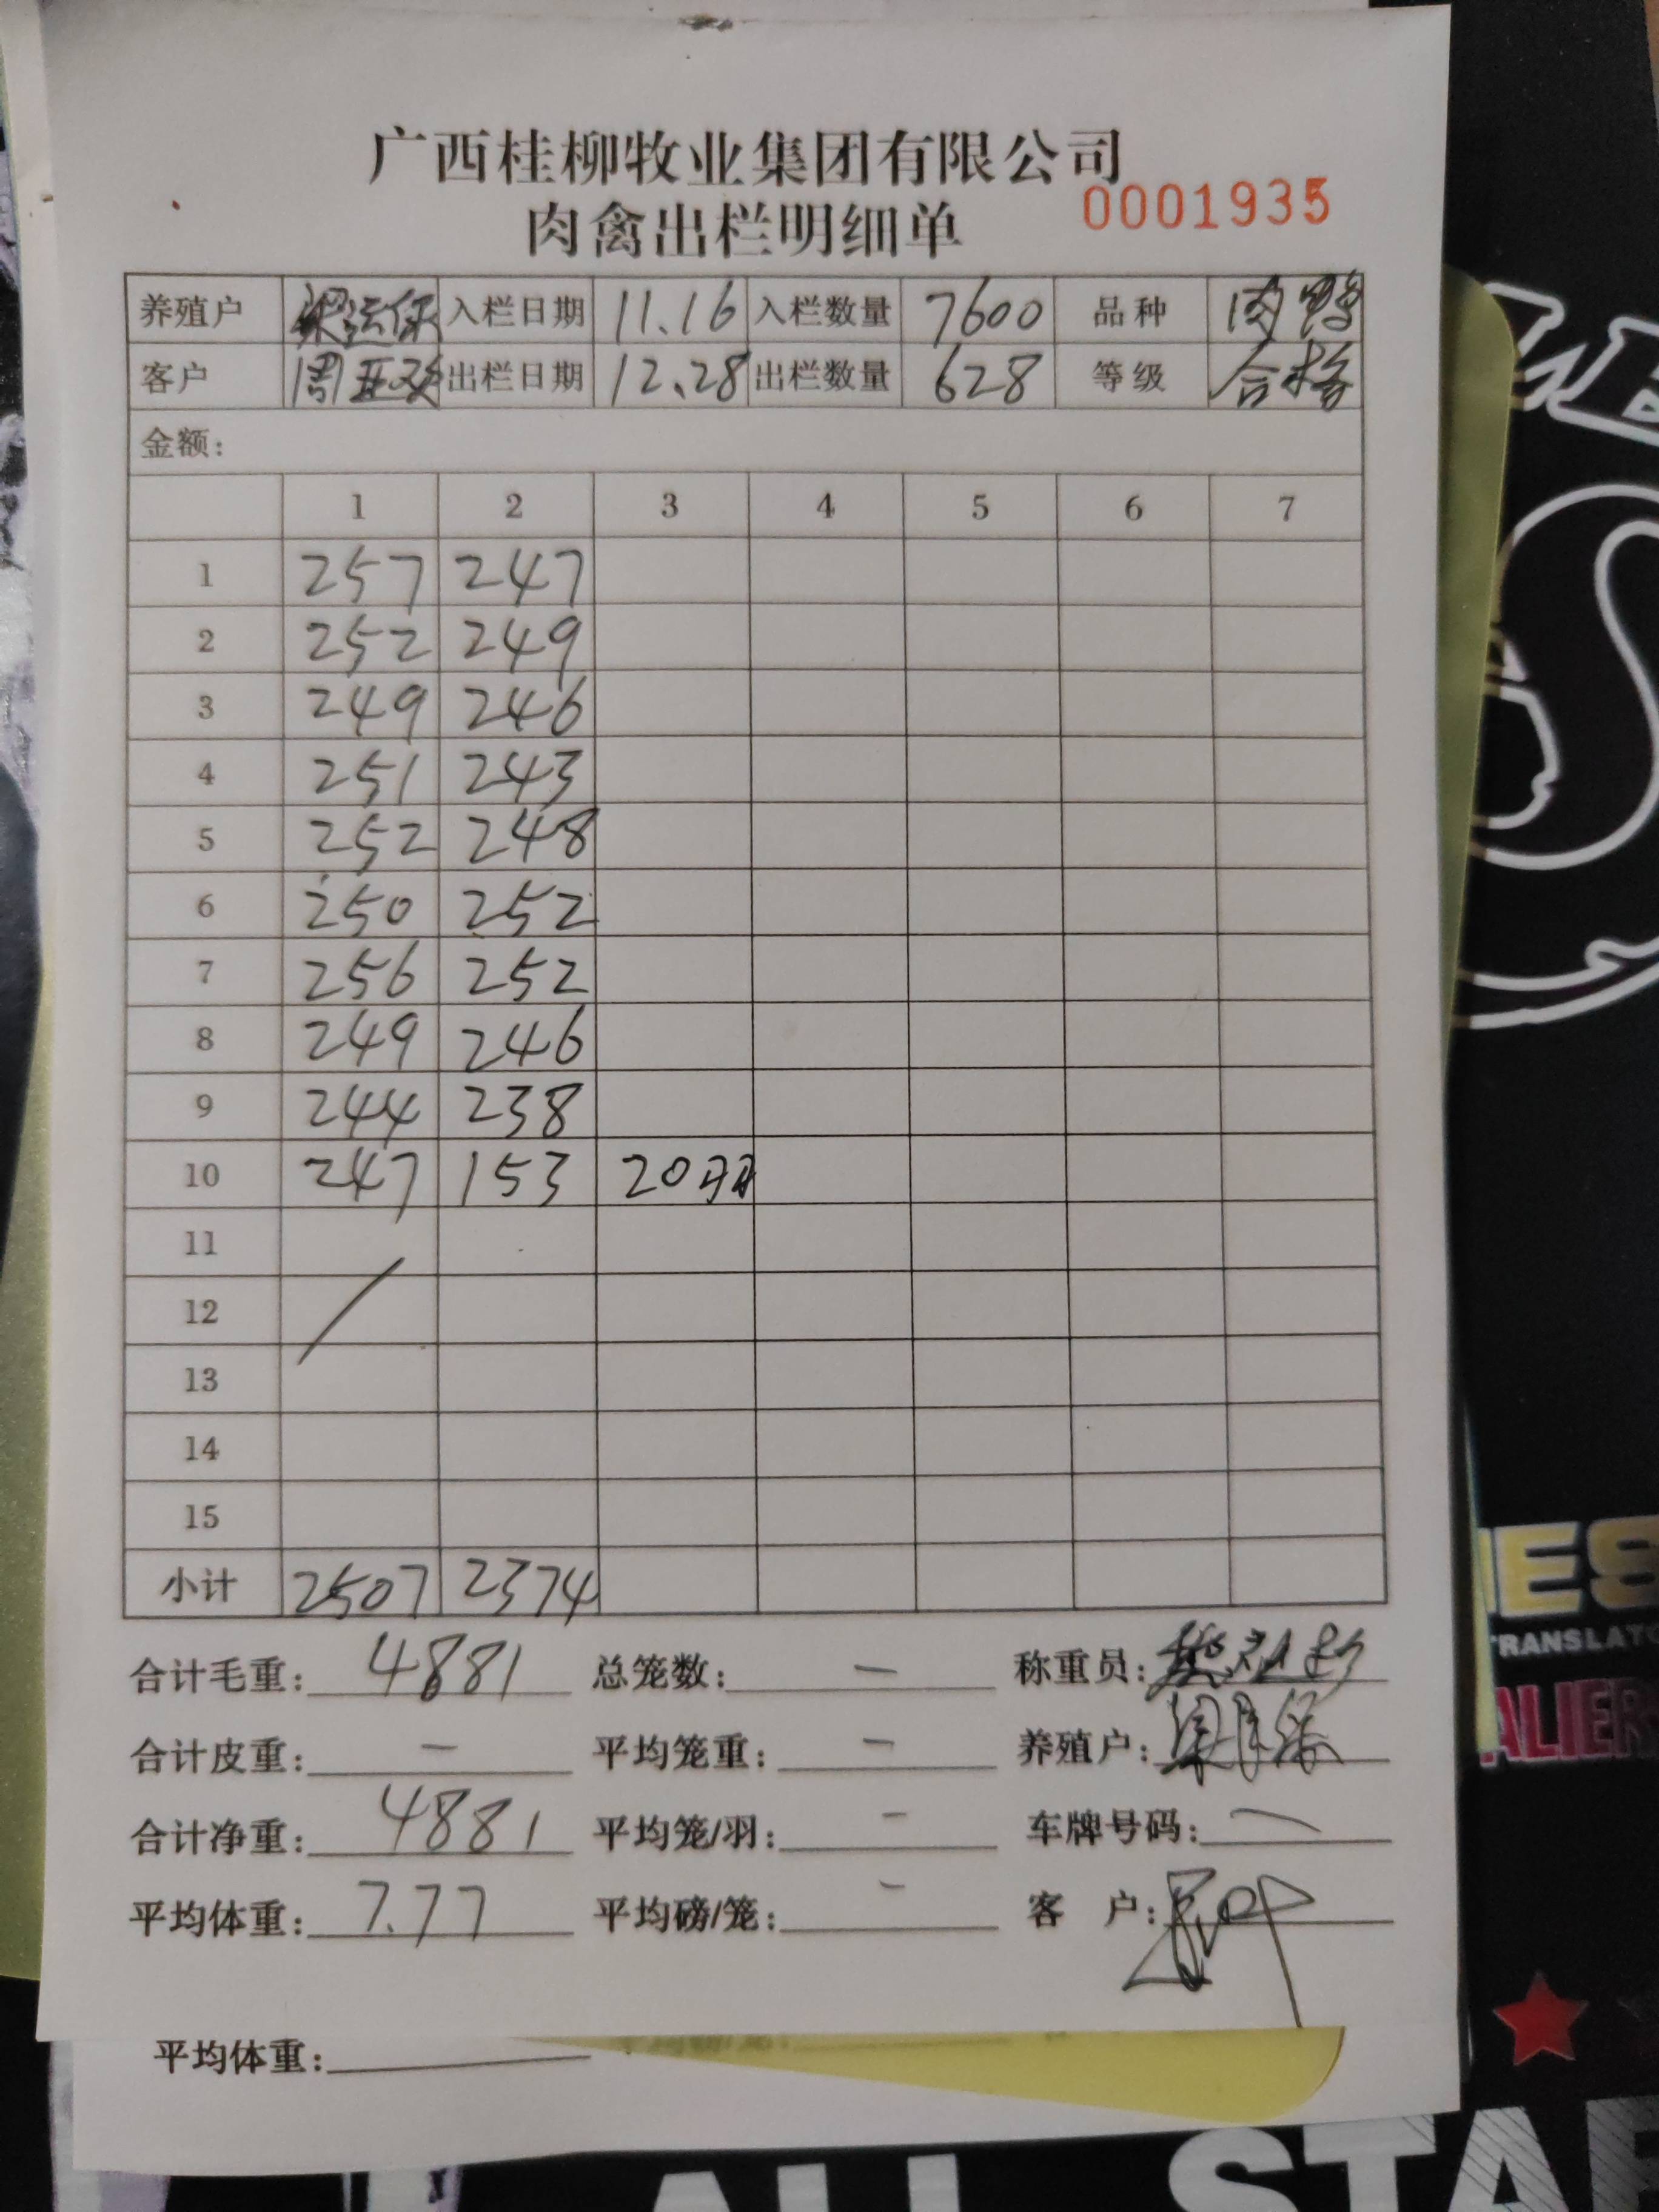 广西桂柳牧业集团有限公司
肉禽出栏明细单 0001935
养殖户 入栏日期 11.16 入栏数量 7600 品种 肉鸭
客户 周亚 出栏日期 12.28 出栏数量 628 等级 合格
金额:
1 2 3 4 5 6 7
1 257 247
2 252 249
3 249 246
4 251 243
5 252 248
6 250 252
7 256 252
8 249 246
9 244 238
10 247 153 20羽
11
12
13
14
15
小计 2507 2374
合计毛重: 4881 总笼数: — 称重员:
合计皮重: — 平均笼重: — 养殖户:
合计净重: 4881 平均笼/羽: — 车牌号码: —
平均体重: 7.77 平均磅/笼: — 客 户:
平均体重:
IES
TRANSLAT
ALIER
ALL STAR